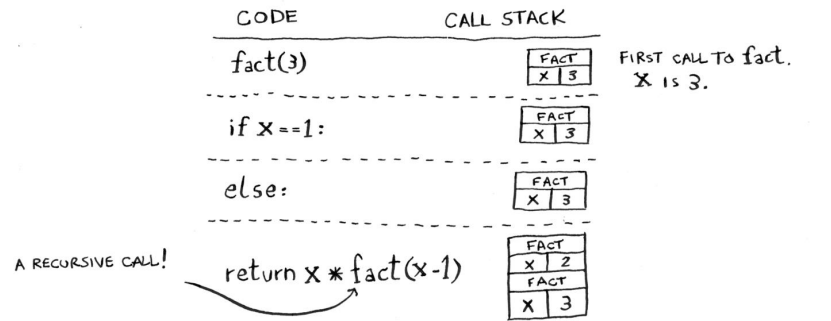 CODE CALL STACK
fact(3)
FACT
X 3
FIRST CALL TO fact.
X IS 3.
if x==1:
FACT
X 3
else:
FACT
X 3
A RECURSIVE CALL!
return x * fact(x-1)
FACT
X 2
FACT
X 3